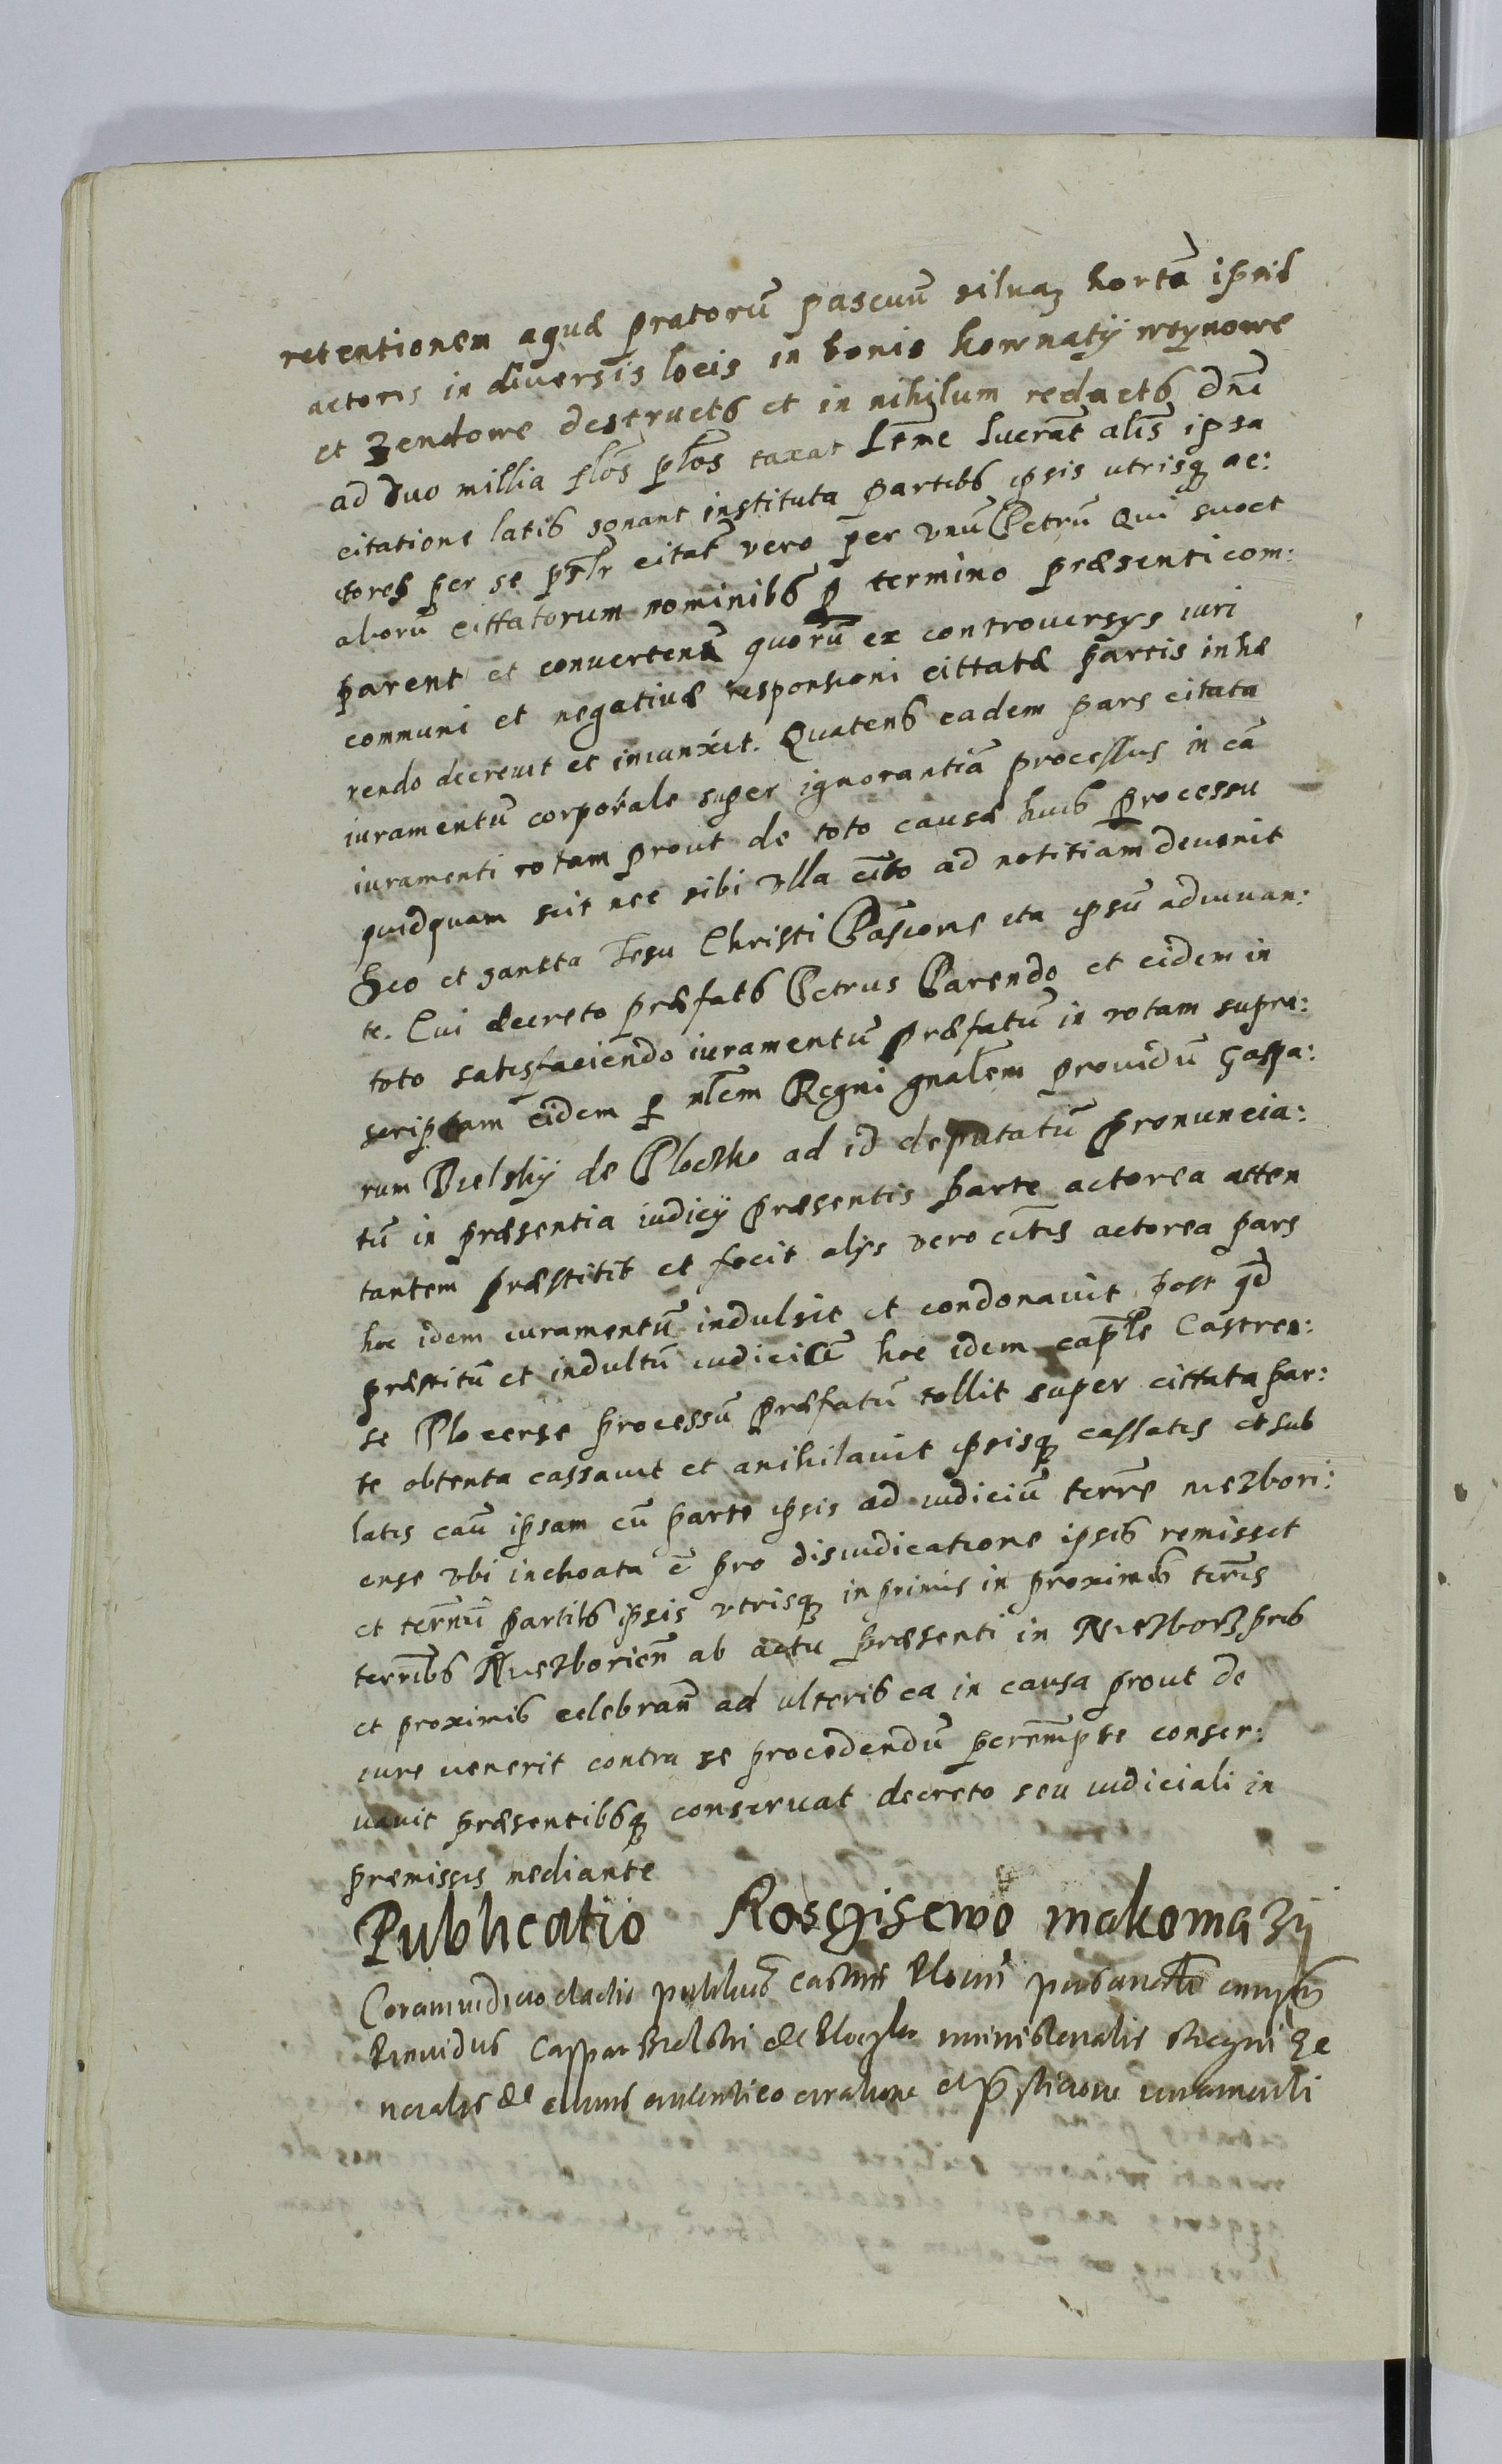 retentionem aquæ pratorũ pascuũ siluaꝝ hortã ipsis
actoris in diuersis locis in bonis kownatÿ woynowe
et Zendowe destructꝰ et in nihilum redactꝰ dnĩ
ad duo millia flõs plõs taxat
citatione latiꝰ sonant instituta partibꝰ ipsis utrisqꝫ ac:
tores per se psr̃ citat̃ vero per vnũ Petrũ Qui suo et
aliorũ cittatorum nominibꝰ termino præsenti com:
parent et quorũ ex controuersys iuri
communi et negatiuæ responsioni cittatæ partis inhæ
rendo decreuit et iniunxit. Quatenꝰ eadem pars citata
iuramentũ corporale super ignorantiã processus in eã
iuramenti rotam prout de toto causæ huiꝰ processu
quidquam scit nec sibi vlla ad notitiam deuenit
et sancta Jesu Christi Passione ita ipsũ adiuuan:
te. Cui decreto præfatꝰ Petrus Parendo et eidem in
toto satisfaciendo iuramentũ præfatũ in rotam supra:
scriptam eidem ꝑ mlẽm Regni gnalẽm prouidũ Gaspa:
rum Bielskÿ de Ploczko ad id deputatũ pronuncia:
tũ in præsentia iudicÿ præsentis parte actorea atten
tantem præstitit et fecit alÿs vero citis actorea pars
hoc idem iuramentũ indulsit et condonauit post qd̃
præstitũ et indultũ hoc idem cap̃le Castren:
se Plocense processũ præfatũ tollit super cittata par:
te obtenta cassauit et anihilauit ipsisqꝫ cassatis et sub
latis caũ ipsam cũ parte ipsis ad iudiciũ terrẽ niezbori:
ense vbi inchoata ẽ pro disiudicatione ipsiꝰ remissit
et termũ partibꝰ ipsis vtrisqꝫ in primis in proximiꝰ terĩs
terrĩbꝰ Niezborieñ ab actu præsenti in
et proximiꝰ celebrañ ad vlteriꝰ ea in causa prout de
iure uenerit contra se procedendũ perẽmpte conser:
uauit præsentibꝰqꝫ conseruat decreto seu iudiciali in
premissis mediante
Publicatio Rosciszewo makomazÿ
Coram iudicio et actis publicis
Prouidus Caspar Bielski de Ploczko ministerialis Regni Ge
neralis iuramenti